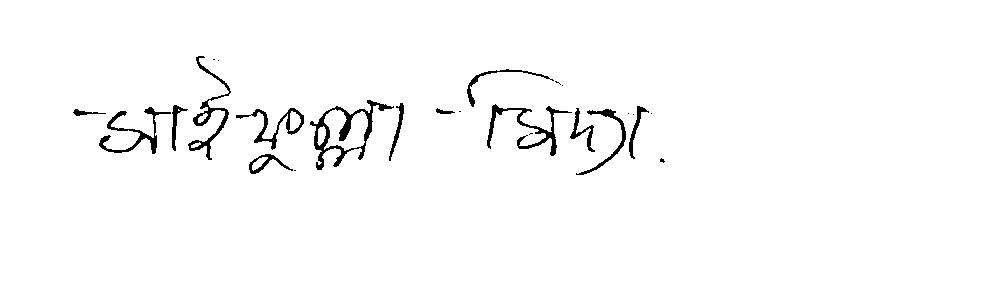 সাইফুল্লা মিদ্যা.